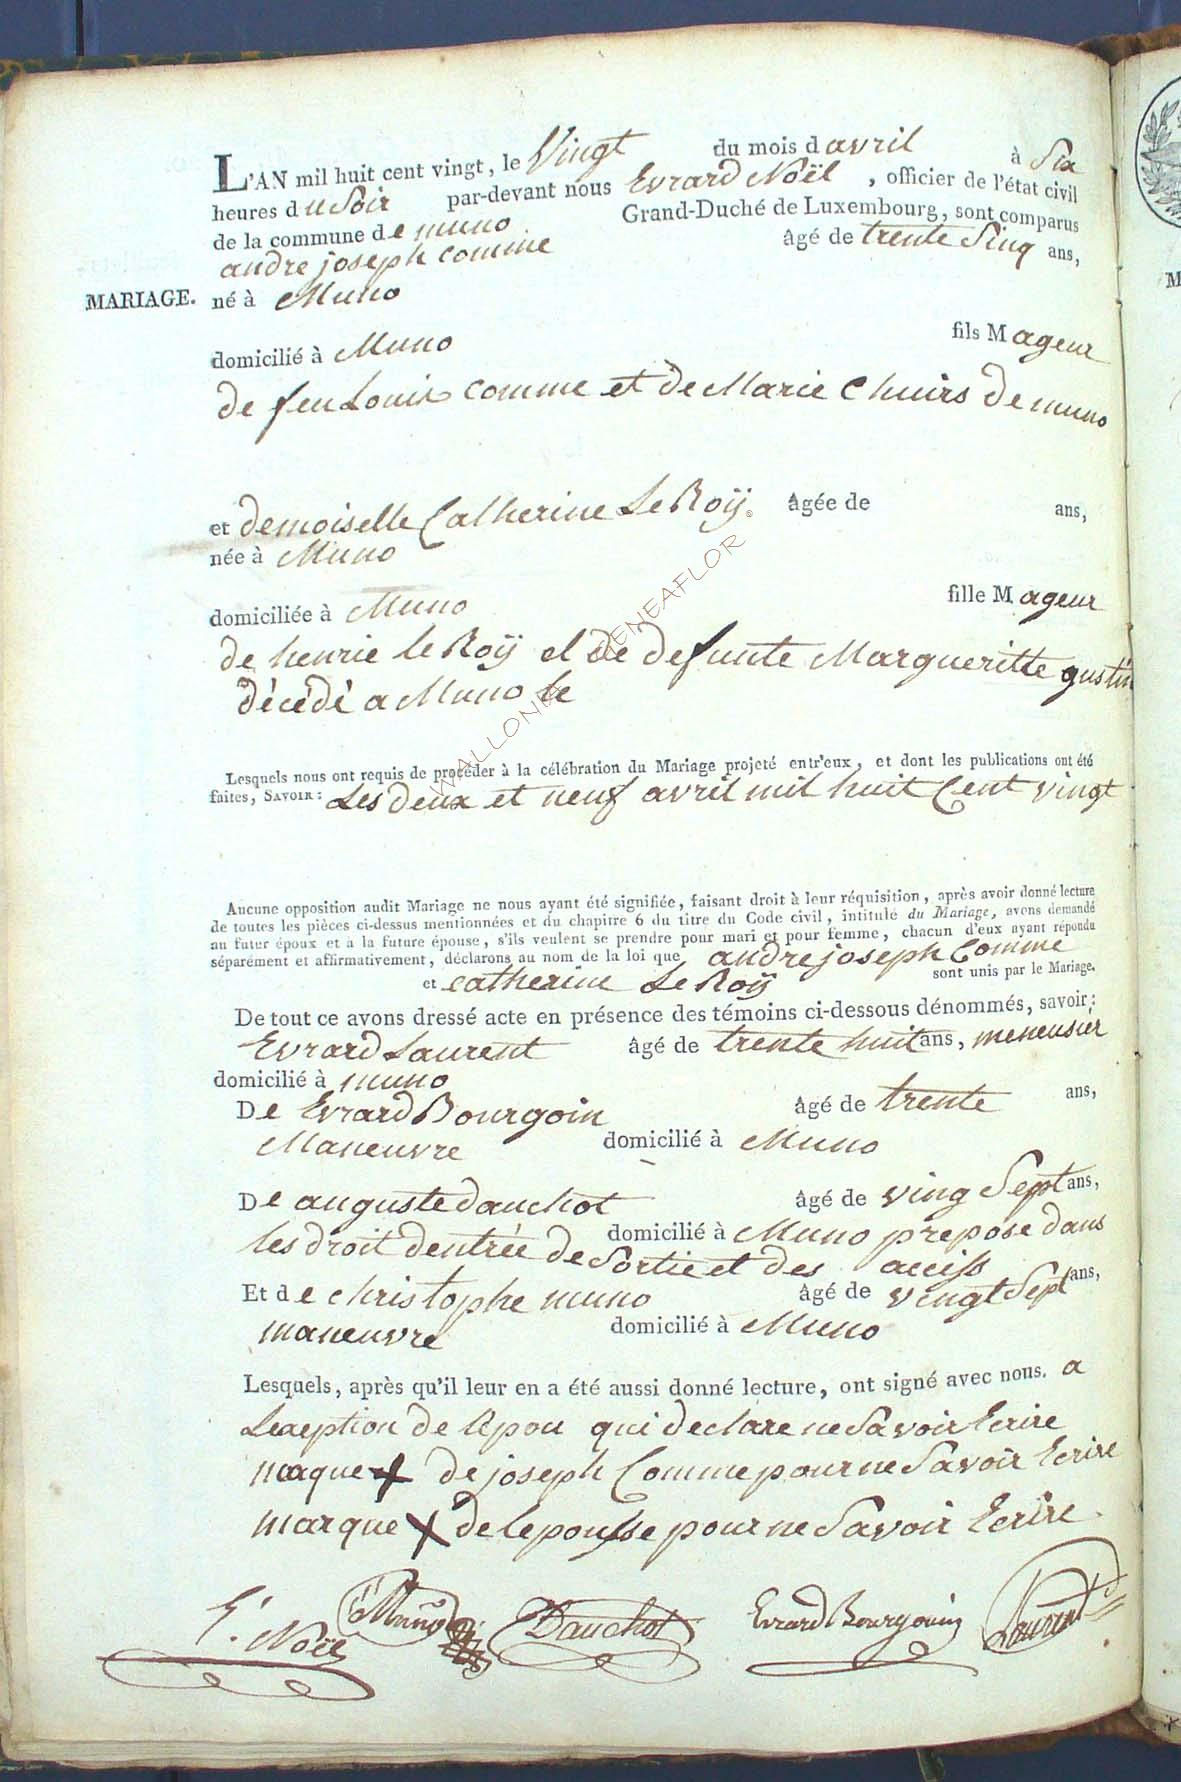 L'AN mil huit cent vingt, le Vingt du mois d avril à Six
heures d u Soir par-devant nous Evrard Noël , officier de l'état civil
de la commune de muno Grand-Duché de Luxembourg, sont comparus
andre joseph comme âgé de trente Sinq ans,
MARIAGE. né à Muno
domicilié à Muno fils M ageur
de feu Louis comme et de Marie Chuirs de muno
et demoiselle Catherine Le Roÿ âgée de ans,
née à Muno
domiciliée à Muno fille M ageur
de henrie le Roÿ et de defunte Margueritte gustin
décédé a Muno le
Lesquels nous ont requis de procéder à la célébration du Mariage projeté entr'eux, et dont les publications ont été
faites, SAVOIR : Les deux et neuf avril mil huit Cent vingt
Aucune opposition audit Mariage ne nous ayant été signifiée, faisant droit à leur réquisition, après avoir donné lecture
de toutes les pièces ci-dessus mentionnées et du chapitre 6 du titre du Code civil, intitulé du Mariage, avons demandé
au futur époux et à la future épouse, s'ils veulent se prendre pour mari et pour femme, chacun d'eux ayant répondu
séparément et affirmativement, déclarons au nom de la loi que andre joseph Comme
et catherine Le Roÿ sont unis par le Mariage.
De tout ce avons dressé acte en présence des témoins ci-dessous dénommés, savoir :
Evrard Laurent âgé de trente huit ans, meneusier
domicilié à muno
De Evrard Bourgoin âgé de trente ans,
Maneuvre domicilié à Muno
De auguste dauchot âgé de ving Sept ans,
domicilié à Muno prepose dans
les droit dentrée de Sortie et des acciss
Et de christophe muno âgé de vingt Sept ans,
maneuvre domicilié à Muno
Lesquels, après qu'il leur en a été aussi donné lecture, ont signé avec nous. a
Lexeption de lepou qui declare ne Savoir Ecrire
maque + de joseph Comme pour ne Savoir Ecrire
marque X de lepousse pour ne Savoir Ecrire.
E. Noël Muno Dauchot Evrard Bourgouin Laurent
WALLONIA GENEAFLOR ©